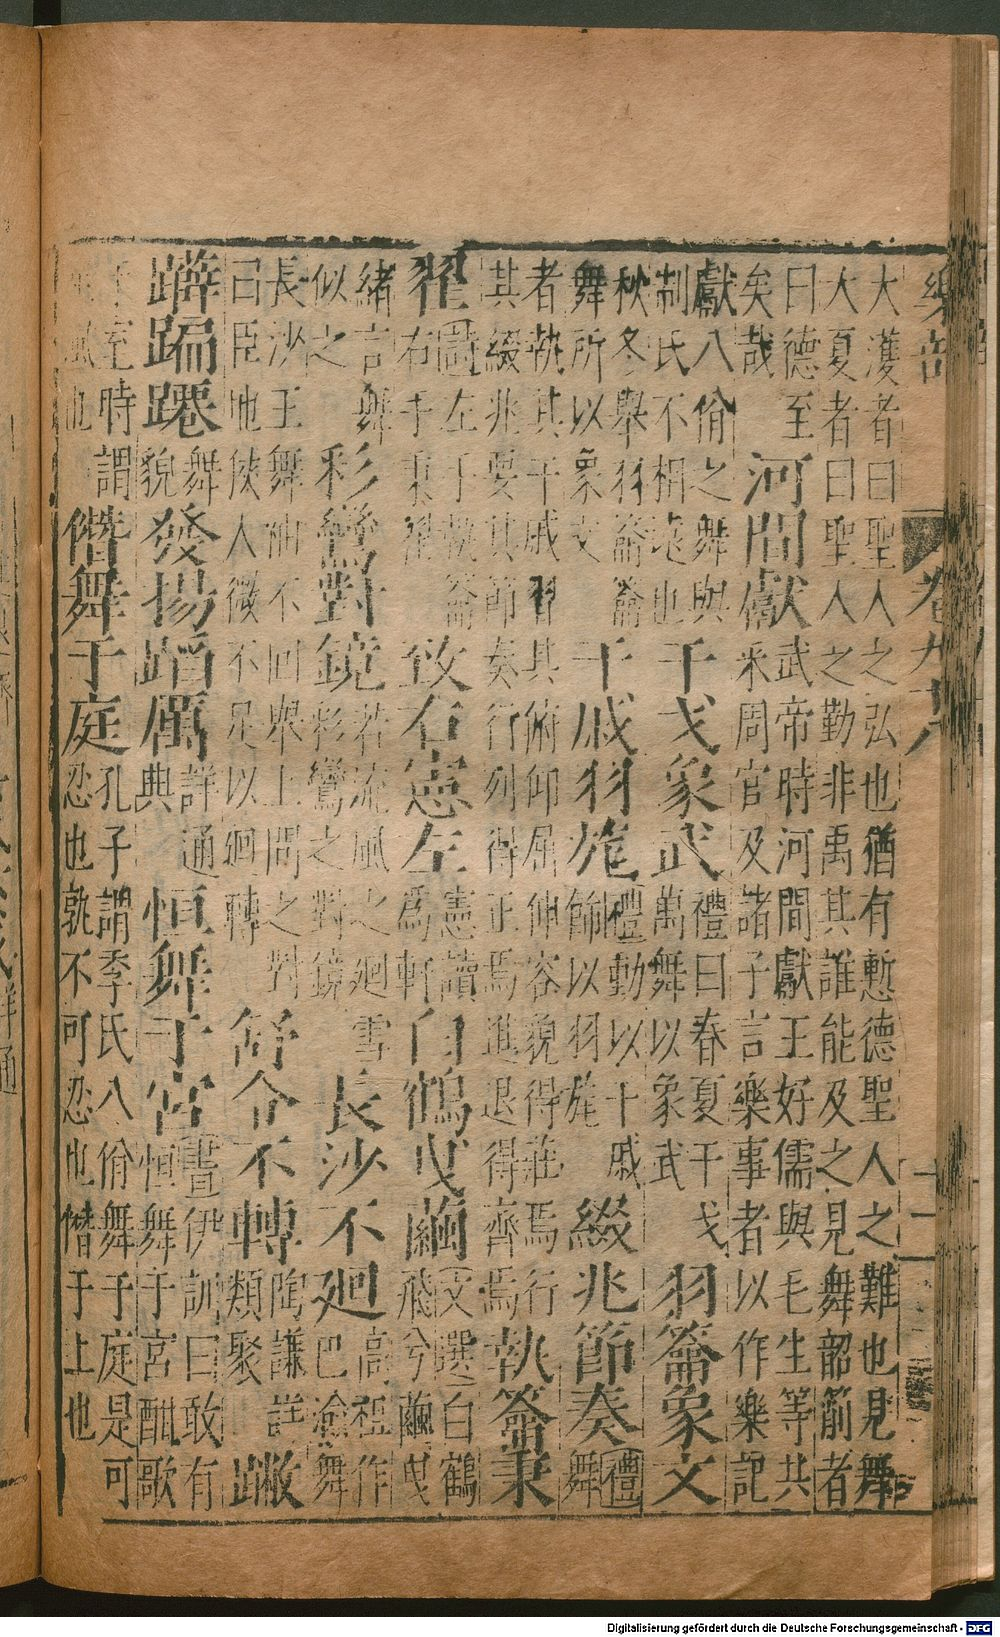 樂部 卷九十
大濩者曰聖人之弘也猶有慙德聖人之難也見舞
大夏者曰聖人之勤非禹其誰能及之見舞韶箾者
曰德至
矣哉
河間獻
武帝時河間獻王好儒與毛生等共
儒采周官及諸子言樂事者以作樂記
獻八佾之舞與
制氏不相遠也
干戈象武
禮曰春夏干戈
萬舞以象武
羽籥象文
秋冬舉羽籥籥
舞所以象文
干戚羽旄
禮動以干戚
飾以羽旄
綴兆節奏
禮
舞
者執其干戚習其俯仰屈伸容貌得莊焉行
其綴兆要其節奏行列得正焉進退得齊焉
執籥秉
翟
詩左手執籥
右手秉翟
致右憲左
憲讀
爲軒
白鶴曳繭
文選白鶴
飛兮繭曳
緒言舞
似之
彩鸞對鏡
若流風之廻雪
彩鸞之對鏡
長沙不廻
高祖作
巴渝舞
長沙王舞袖不回舉上問之對
曰臣地狹人微不足以廻轉
舒合不轉
陶謙詳
類聚
蹴
躃蹁躚
舞
貌
發揚蹈厲
詳通
典
恒舞于宮
書伊訓曰敢有
恒舞于宮酣歌
于室時謂
巫風也
僭舞于庭
孔子謂季氏八佾舞于庭是可
忍也孰不可忍也僭于上也
Digitalisierung gefördert durch die Deutsche Forschungsgemeinschaft - DFG